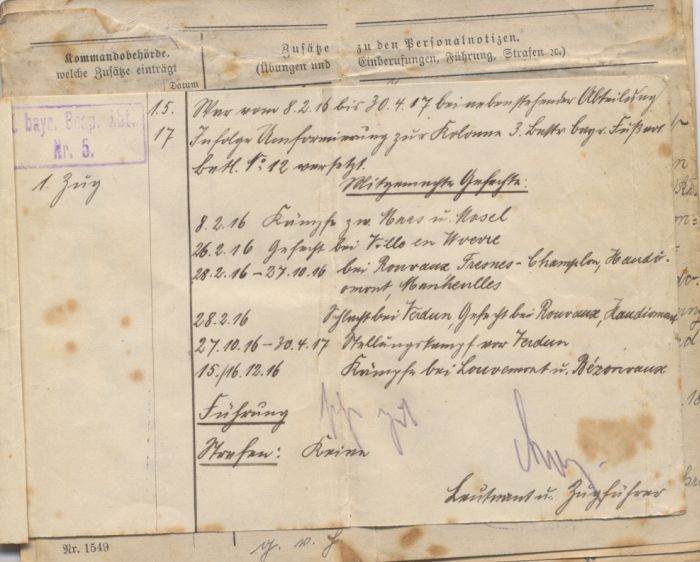 Kommandobehörde.
welche Zusätze einträgt
Datum
Zusätze
(Übungen und
zu den Personalnotizen.
Einberufungen, Führung, Strafen ꝛc.)
bayr. Besp. Abt.
Nr. 5.
1. Zug
1.5.
17
War vom 8.2.16 bis 30.4.17 bei nebenstehender Abteilung
Infolge Umformierung zur Kolonne 3. Battr bayr. Fußart.
Batl. No 12 versetzt.
Mitgemachte Gefechte:
8.2.16 Kämpfe zw. Maas u. Mosel
26.2.16 Gefecht bei Ville en Woevre
28.2.16 – 27.10.16 bei Ronvaux Fresnes-Champlon, Haudi-
omont, Manheulles
28.2.16 Schlacht bei Verdun, Gefecht bei Ronvaux, Haudiomont
27.10.16 – 30.4.17 Stellungskampf vor Verdun
15./16.12.16 Kämpfe bei Louvemont u. Bézonvaux
Führung sehr gut
Strafen: Keine
Leutnant u. Zugführer
Nr. 1549
g. v. H